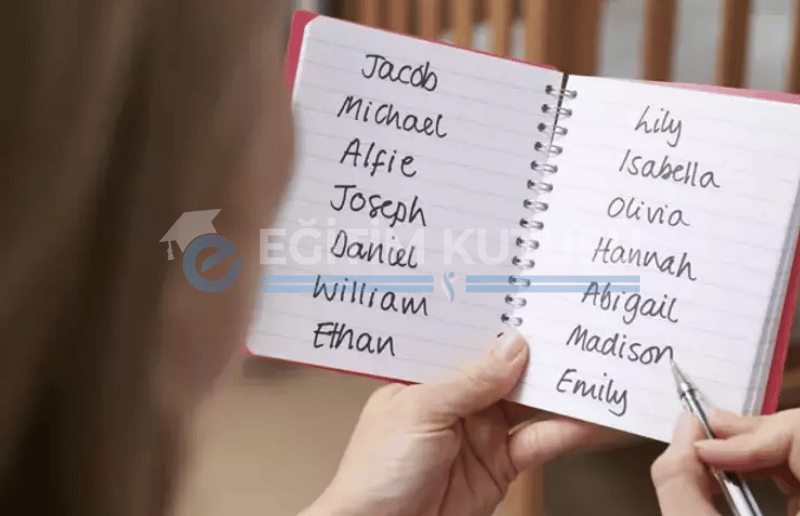 Jacob
Michael
Alfie
Joseph
Daniel
William
Ethan
Lily
Isabella
Olivia
Hannah
Abigail
Madison
Emily
e EĞİTİM KUTUSU